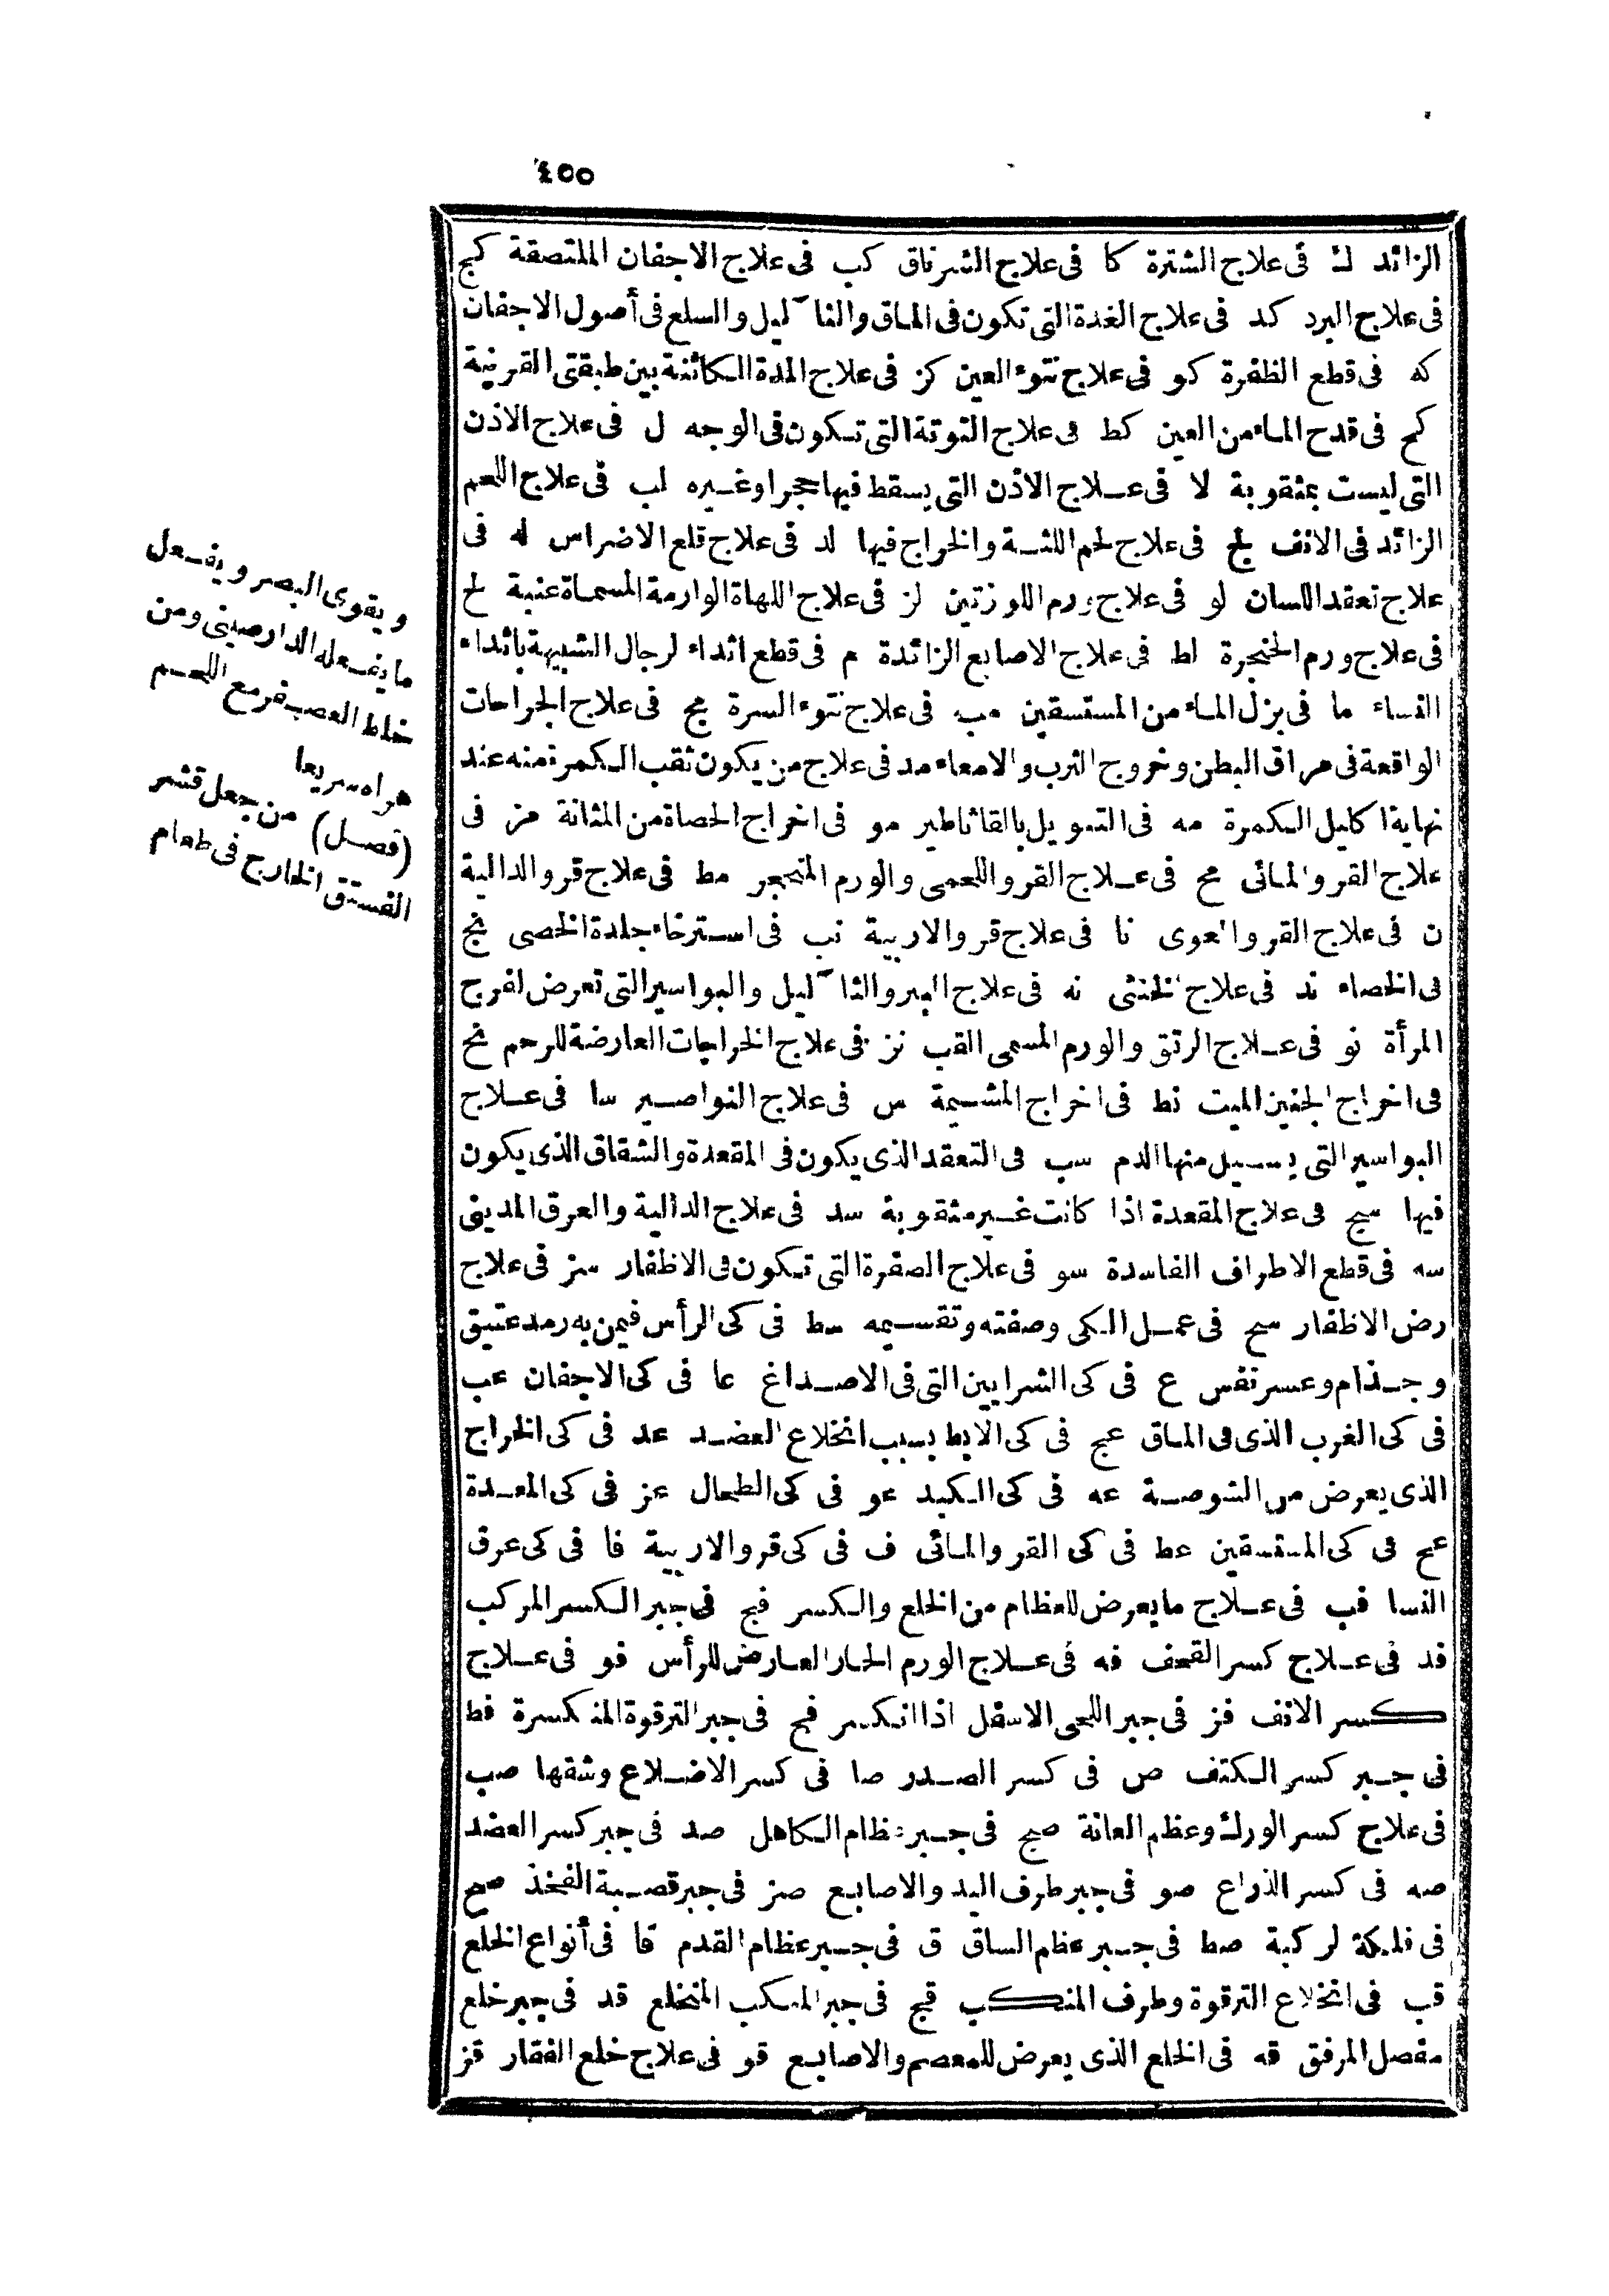 ٤٥٥
الزائد ك فى علاج الشترة كا فى علاج الشرناق كب فى علاج الاجفان الملتصقة كج
فى علاج البرد كد فى علاج الغدة التى تكون فى الماق والثآ ليل والسلع فى أصول الاجفان
كه فى قطع الظفرة كو فى علاج نتوء العين كز فى علاج المدة الكائنة بين طبقتى القرنية
كح فى قدح الماء من العين كط فى علاج التوتة التى تكون فى الوجه ل فى علاج الاذن
التى ليست بمثقوبة لا فى علاج الاذن التى يسقط فيها حجر اوغيره لب فى علاج اللحم
الزائد فى الانف لج فى علاج لحم اللثة والخراج فيها لد فى علاج قلع الاضراس له فى
علاج تعقد اللسان لو فى علاج ورم اللوزتين لز فى علاج اللهاة الوارمة المسماة عنبة لح
فى علاج ورم الحنجرة لط فى علاج الاصابع الزائدة م فى قطع اثداء لرجال الشبيهة باثداء
النساء ما فى بزل الماء من المستسقين مب فى علاج نتوء السرة مج فى علاج الجراحات
الواقعة فى مراق البطن وخروج الثرب والامعاء مد فى علاج من يكون ثقب الكمرة منه عند
نهاية اكليل الكمرة مه فى التبويل بالقاثاطير مو فى اخراج الحصاة من المثانة مز فى
علاج القرو المائى مح فى علاج القرو اللحمى والورم المتحجر مط فى علاج قرو الدالية
ن فى علاج القرو المعوى نا فى علاج قرو الاربية نب فى استرخاء جلدة الخصى نج
فى الخصاء ند فى علاج الخنثى نه فى علاج البر والثآ ليل والبواسير التى تعرض لفرج
المرأة نو فى علاج الرتق والورم المسمى القب نز فى علاج الخراجات العارضة للرحم نح
فى اخراج الجنين الميت نط فى اخراج المشيمة س فى علاج النواصير سا فى علاج
البواسير التى يسيل منها الدم سب فى التعقد الذى يكون فى المقعدة والشقاق الذى يكون
فيها سج فى علاج المقعدة اذا كانت غير مثقوبة سد فى علاج الدالية والعرق المدينى
سه فى قطع الاطراف الفاسدة سو فى علاج الصفرة التى تكون فى الاظفار سز فى علاج
رض الاظفار سح فى عمل الكى وصفته وتقسيمه سط فى كى الرأس فيمن به رمد عتيق
وجذام وعسر نفس ع فى كى الشرايين التى فى الاصداغ عا فى كى الاجفان عب
فى كى الغرب الذى فى الماق عج فى كى الابط بسبب انخلاع العضد عد فى كى الخراج
الذى يعرض من الشوصة عه فى كى الكبد عو فى كى الطحال عز فى كى المعدة
عح فى كى المستسقين عط فى كى القرو المائى ف فى كى قرو الاربية فا فى كى عرق
النسا فب فى علاج ما يعرض للعظام من الخلع والكسر فج فى جبر الكسر المركب
فد فى علاج كسر القحف فه فى علاج الورم الحار العارض للرأس فو فى علاج
كسر الانف فز فى جبر اللحى الاسفل اذا انكسر فح فى جبر الترقوة المنكسرة فط
فى جبر كسر الكتف ص فى كسر الصدر صا فى كسر الاضلاع وشقها صب
فى علاج كسر الورك وعظم العانة صج فى جبر عظام الكاهل صد فى جبر كسر العضد
صه فى كسر الذراع صو فى جبر طرف اليد والاصابع صز فى جبر قصبة الفخذ صح
فى فلكة لركبة صط فى جبر عظم الساق ق فى جبر عظام القدم قا فى أنواع الخلع
قب فى انخلاع الترقوة وطرف المنكب قج فى جبر المنكب المنخلع قد فى جبر خلع
مفصل المرفق قه فى الخلع الذى يعرض للمعصم والاصابع قو فى علاج خلع الفقار قز
ويقوى البصر ويفعل
ما يفعله الدارصينى ومن
خلط العصب فر مع اللحم
هراه سريعا
(فصل) من جعل قشر
الفستق الخارج فى طعام